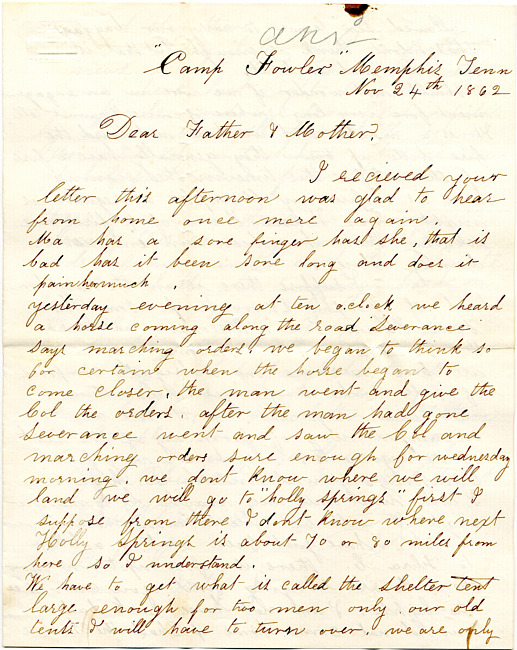 ans
"Camp Fowler" Memphis Tenn
Nov 24th 1862
Dear Father & Mother,
I recieved your
letter this afternoon was glad to hear
from home once more again.
Ma has a sore finger has she, that is
bad has it been sore long and does it
pain her much.
yesterday evening at ten o.clock we heard
a horse coming along the road Severance
says marching orders, we began to think so
for certain when the horse began to
come closer, the man went and give the
Col the orders. after the man had gone
Severance went and saw the Col and
marching orders sure enough for wednesday
morning. we dont know where we will
land we will go to "holly springs" first I
suppose from there I dont know where next
Holly springs is about 70 or 80 miles from
here so I understand.
We have to get what is called the shelter tent
large enough for two men only. our old
tents I will have to turn over. we are only